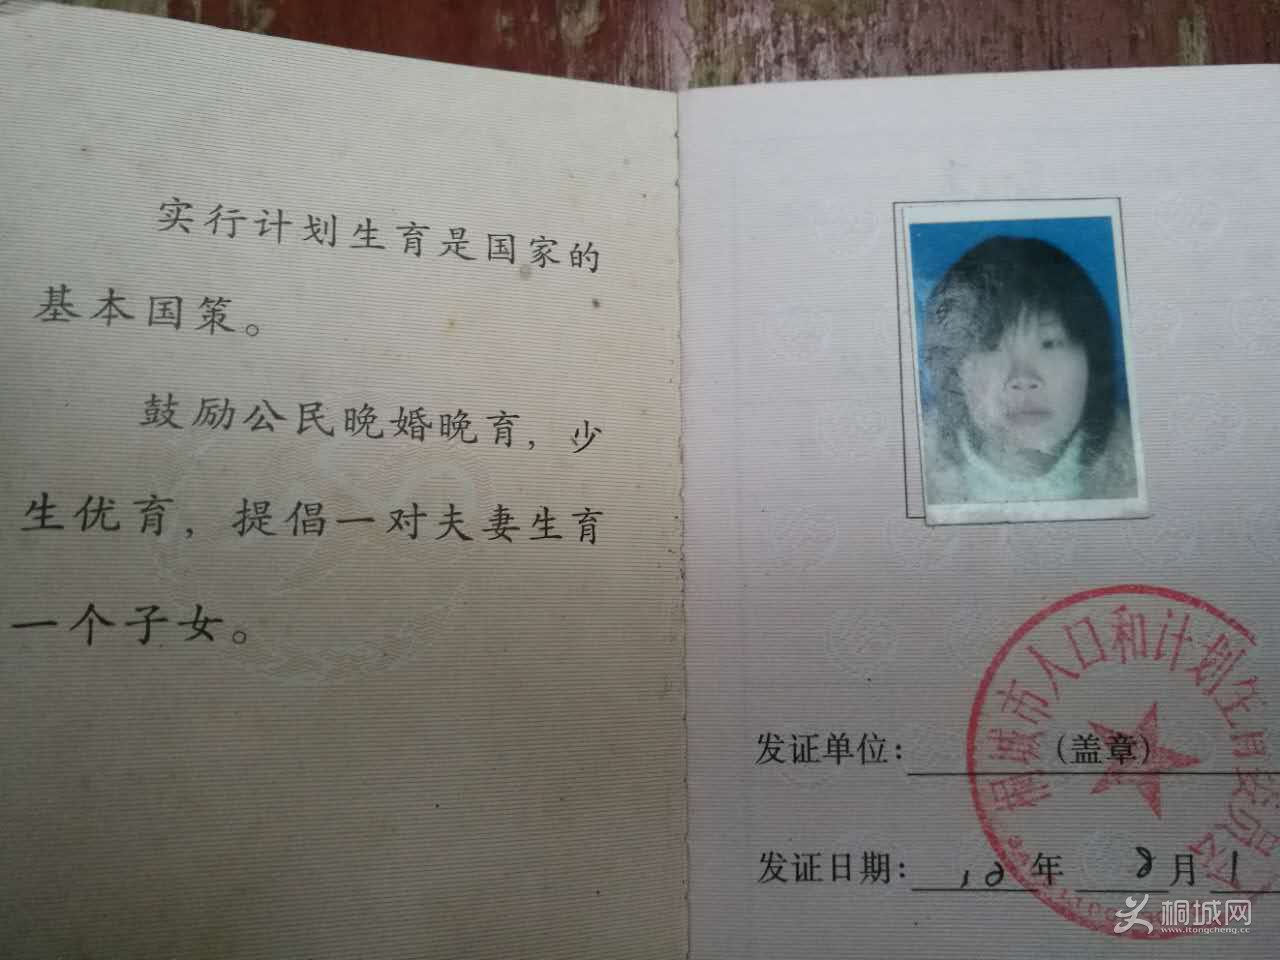 实行计划生育是国家的
基本国策。
鼓励公民晚婚晚育，少
生优育，提倡一对夫妻生育
一个子女。
桐城市人口和计划生育委员会
发证单位：（盖章）
发证日期：12年 8月 1
桐城网
www.itongcheng.cc